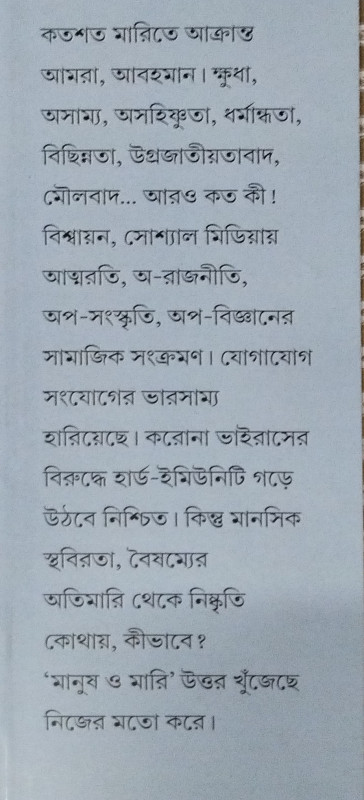 কতশত মারিতে আক্রান্ত
আমরা, আবহমান। ক্ষুধা,
অসাম্য, অসহিষ্ণুতা, ধর্মান্ধতা,
বিছিন্নতা, উগ্রজাতীয়তাবাদ,
মৌলবাদ... আরও কত কী!
বিশ্বায়ন, সোশ্যাল মিডিয়ায়
আত্মরতি, অ-রাজনীতি,
অপ-সংস্কৃতি, অপ-বিজ্ঞানের
সামাজিক সংক্রমণ। যোগাযোগ
সংযোগের ভারসাম্য
হারিয়েছে। করোনা ভাইরাসের
বিরুদ্ধে হার্ড-ইমিউনিটি গড়ে
উঠবে নিশ্চিত। কিন্তু মানসিক
স্থবিরতা, বৈষম্যের
অতিমারি থেকে নিষ্কৃতি
কোথায়, কীভাবে?
‘মানুষ ও মারি’ উত্তর খুঁজেছে
নিজের মতো করে।